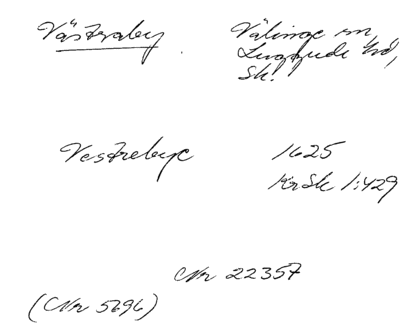 Västraby
Välinge sn,
Luggude hd,
Sk.
Vestrebye 1625
KrSk 1:429
CNr 22357
(CNr 5696)